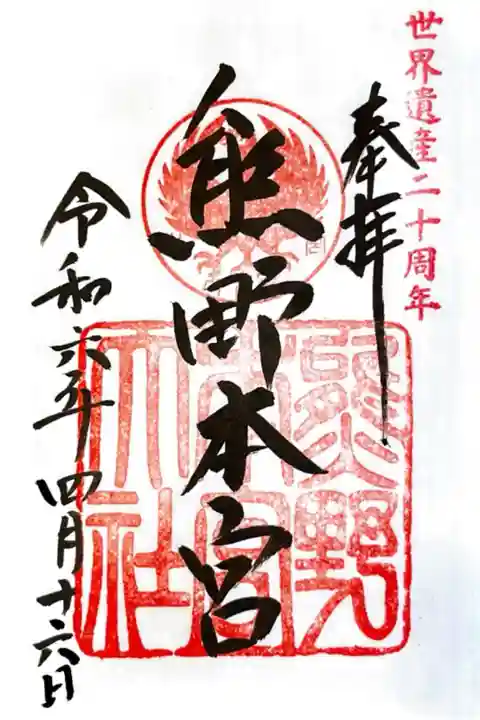 世界遺産二十周年
奉拝
熊野本宮
熊野
本宮
大社
令和六年四月十六日